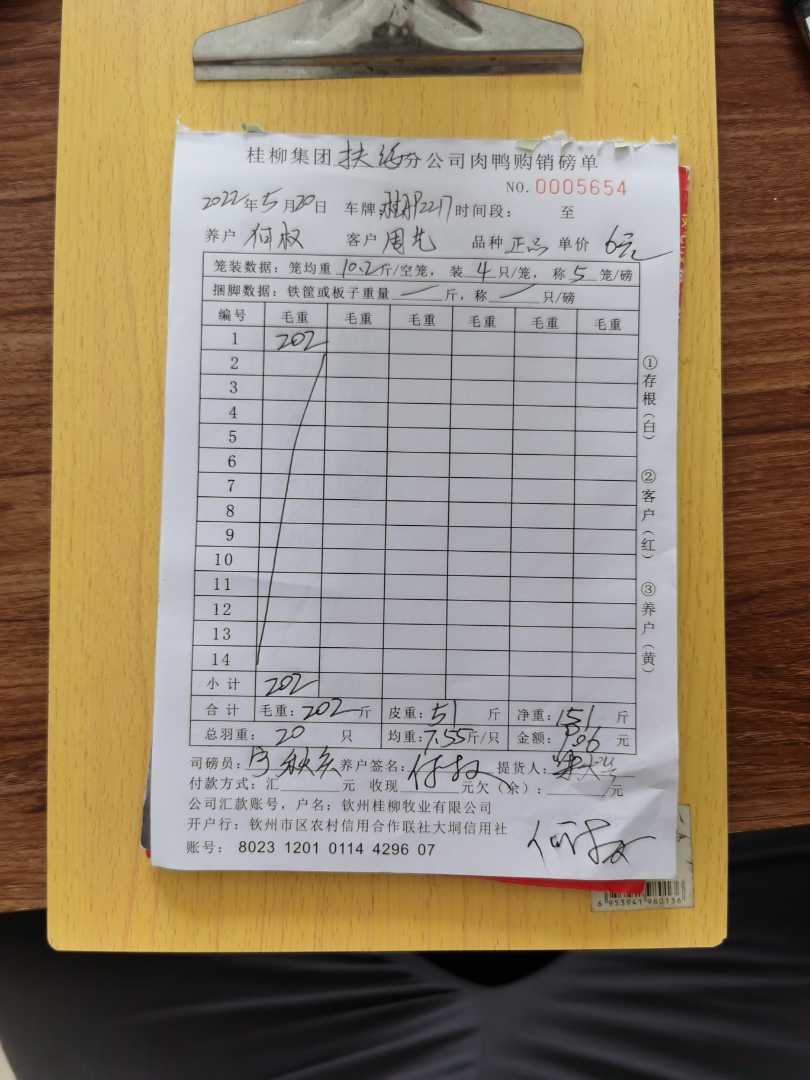 桂柳集团扶绥分公司肉鸭购销磅单
NO. 0005654
2022年5月20日 车牌: 时间段: 至
养户 何权 客户 周先 品种 正品 单价 6元
笼装数据: 笼均重 10.2 斤/空笼, 装 4 只/笼, 称 5 笼/磅
捆脚数据: 铁筐或板子重量 — 斤, 称 — 只/磅
编号 毛重 毛重 毛重 毛重 毛重 毛重
1 202
2
3
4
5
6
7
8
9
10
11
12
13
14
小计 202
合计 毛重: 202 斤 皮重: 51 斤 净重: 151 斤
总羽重: 20 只 均重: 7.55 斤/只 金额: 906 元
司磅员: 养户签名: 何权 提货人:
付款方式: 汇 元 收现 元欠(余): 元
公司汇款账号, 户名: 钦州桂柳牧业有限公司
开户行: 钦州市区农村信用合作联社大垌信用社
账号: 8023 1201 0114 4296 07
何权
①存根(白) ②客户(红) ③养户(黄)
6 953941 980136